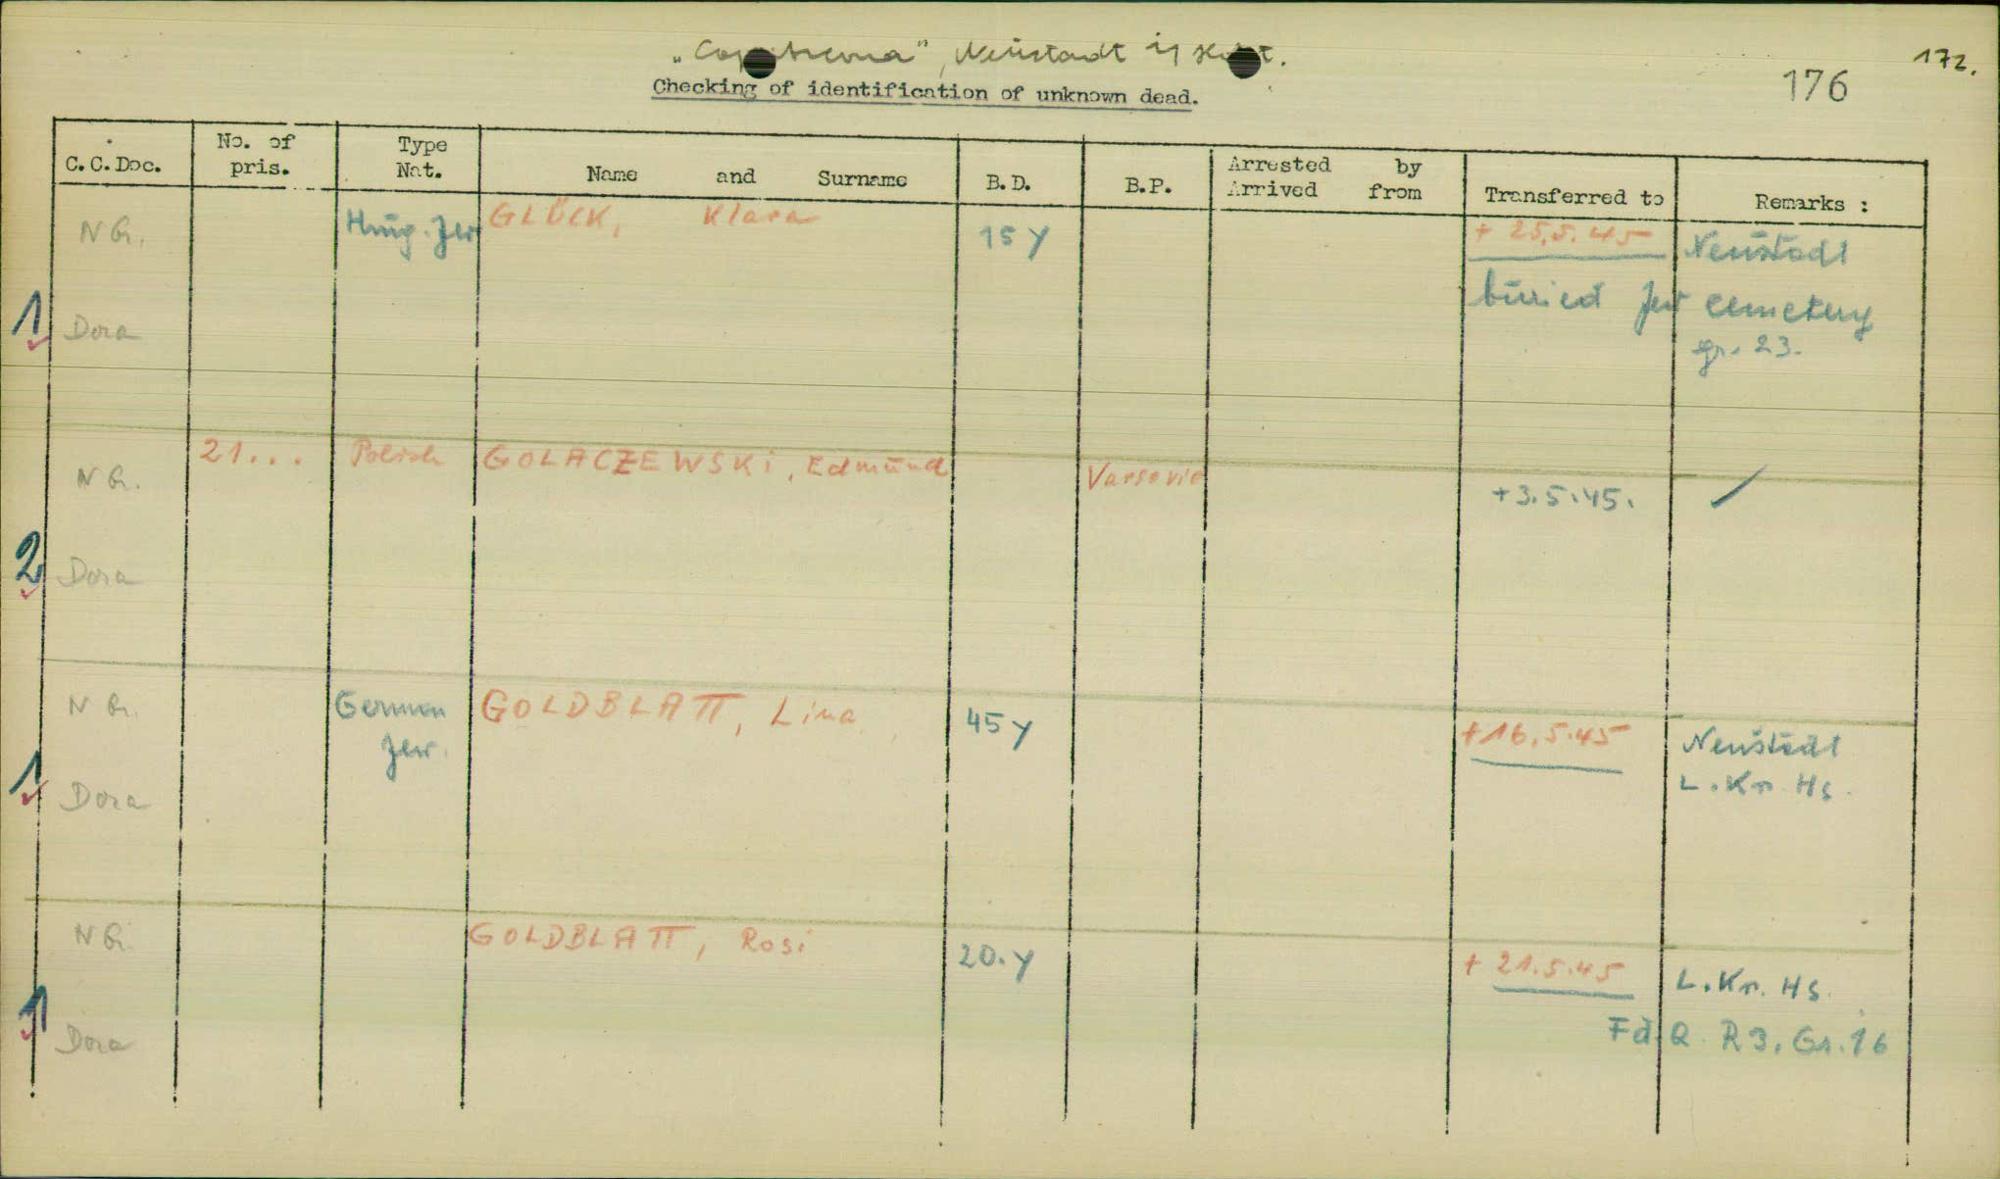 „Cap Arcona", Neustadt i/ Holst.
172.
176
Checking of identification of unknown dead.
C.C.Doc. No. of pris. Type Nat. Name and Surname B.D. B.P. Arrested by Arrived from Transferred to Remarks :
N Gr. Hung. Jew GLÜCK, Klara 15 y + 25.5.45 Neustadt
1 Dora buried Jew cemetery
gr. 23.
N Gr. 21... Polish GOLACZEWSKi, Edmund Varsovie +3.5.45.
2 Dora
N Gr. German GOLDBLATT, Lina 45 y +16.5.45 Neustadt
Jew. L. Kr. Hs.
1 Dora
N Gr. GOLDBLATT, Rosi 20. y + 21.5.45 L. Kr. Hs.
1 Dora Fd. Q. R 3. Gr. 16